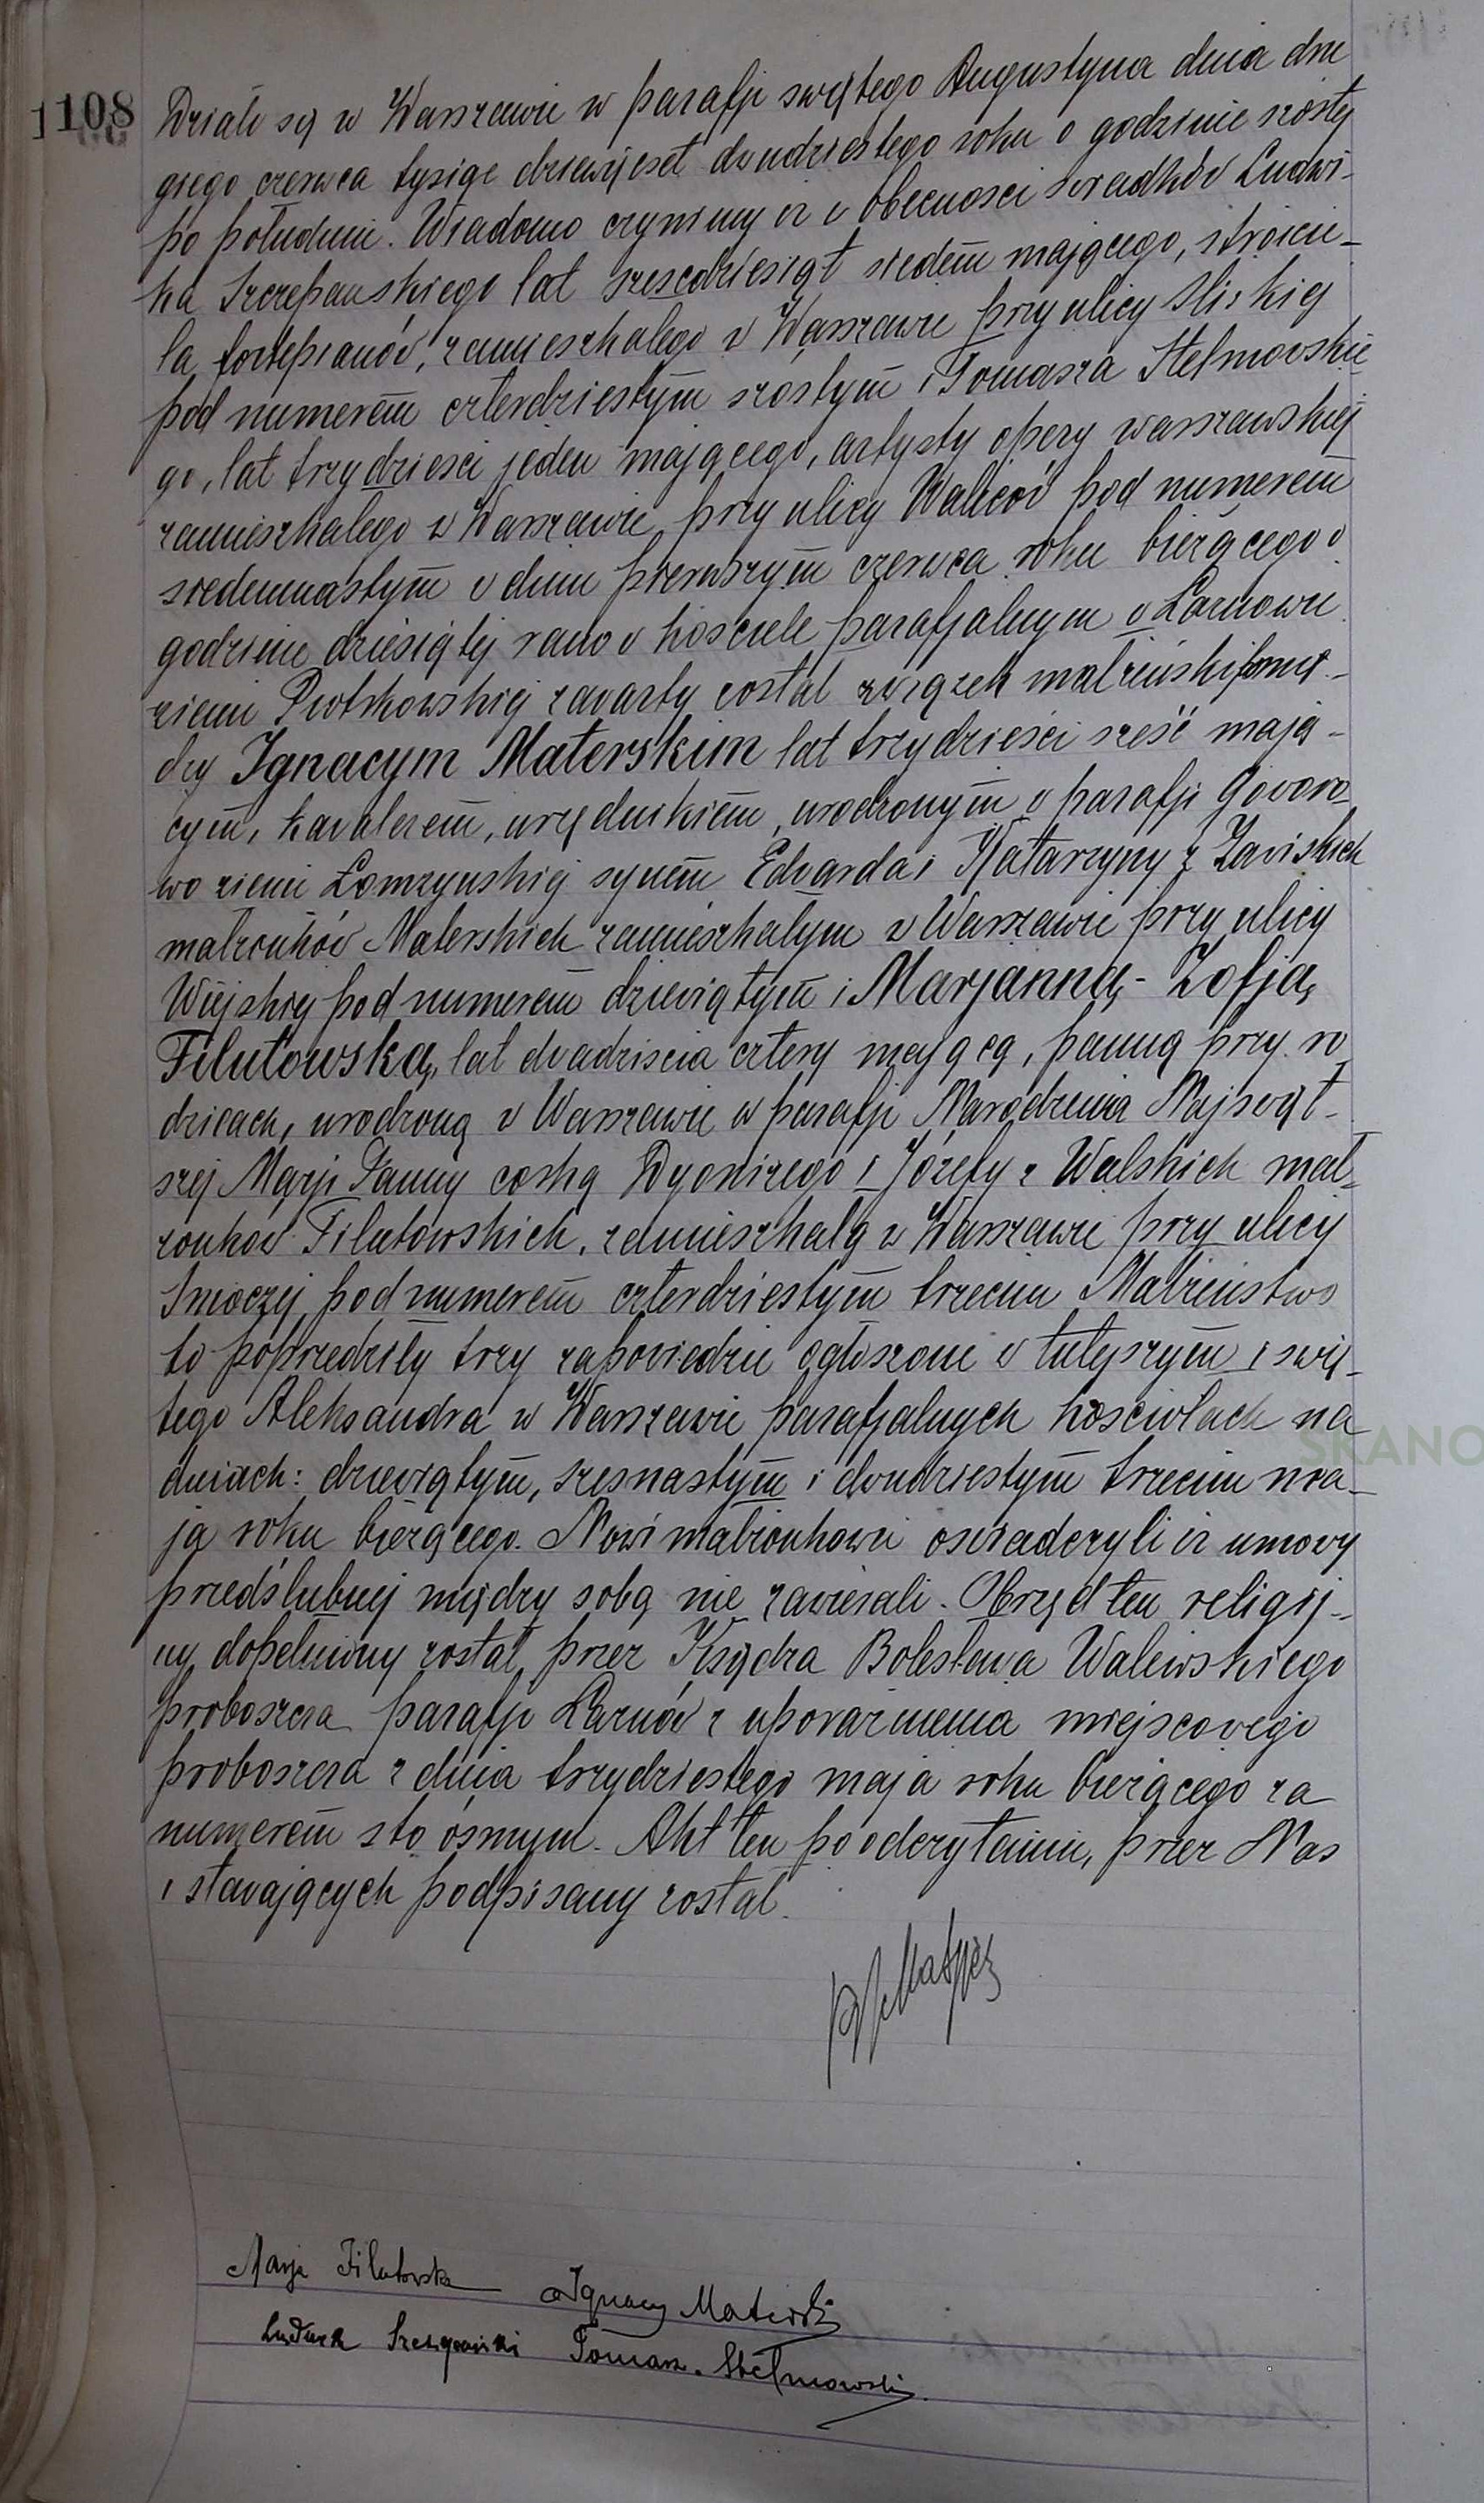 1108
Działo się w Warszawie w parafji świętego Augustyna dnia dru
giego czerwca tysiąc dziewięćset dwudziestego roku o godzinie szóstej
po południu. Wiadomo czynimy iż w obecności świadków Ludwi-
ka Szczepańskiego lat sześćdziesiąt siedem mającego, stroicie-
la fortepianów, zamieszkałego w Warszawie przy ulicy Śliskiej
pod numerem czterdziestym szóstym i Tomasza Stelmowskie
go, lat trzydzieści jeden mającego, artysty opery warszawskiej
zamieszkałego w Warszawie przy ulicy Waliców pod numerem
siedemnastym w dniu pierwszym czerwca roku bieżącego o
godzinie dziesiątej rano w kościele parafjalnym w Łaznowie
ziemi Piotrkowskiej zawarty został związek małżeński pomię-
dzy Ignacym Materskim lat trzydzieści sześć mają-
cym, kawalerem, urzędnikiem, urodzonym w parafji Goworo-
wo ziemi Łomżyńskiej synem Edwarda i Katarzyny z Zawiskich
małżonków Materskich zamieszkałym w Warszawie przy ulicy
Wiejskiej pod numerem dziewiątym i Marjanną-Zofją
Filutowską, lat dwadzieścia cztery mającą, panną przy ro
dzicach, urodzoną w Warszawie w parafji Narodzenia Najświęt-
szej Marji Panny córką Dyonizego i Józefy z Walskich mał-
żonków Filutowskich, zamieszkałą w Warszawie przy ulicy
Smoczej pod numerem czterdziestym trzecim Małżeństwo
to poprzedziły trzy zapowiedzie ogłoszone w tutejszym i świę-
tego Aleksandra w Warszawie parafjalnych kościołach na
dniach: dziewiątym, szesnastym i dwudziestym trzecim ma-
ja roku bieżącego. Nowi małżonkowie oświadczyli iż umowy
przedślubnej między sobą nie zawierali. Obrzęd ten religij-
ny dopełniony został przez Księdza Bolesława Walewskiego
proboszcza parafji Łaznów z upoważnienia miejscowego
proboszcza z dnia trzydziestego maja roku bieżącego za
numerem sto ósmym. Akt ten po odczytaniu, przez Nas
i stawających podpisany został.
Marja Filutowska Ignacy Materski
Ludwik Szczepański Tomasz Stelmowski
SKANO